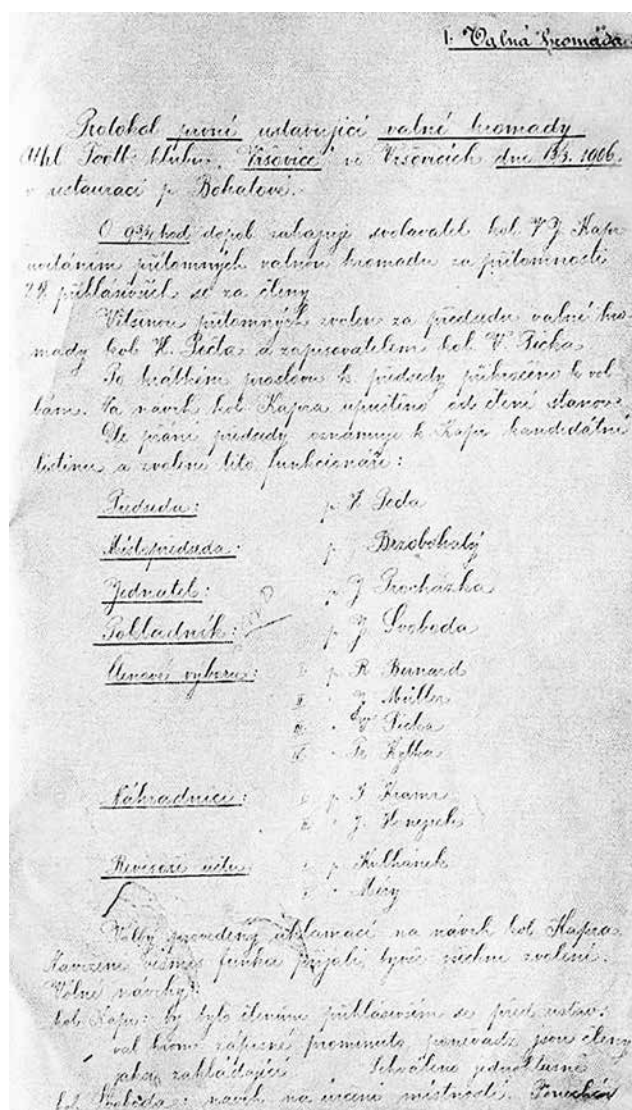 I. Valná hromada.
Protokol první ustavující valné hromady
Athl Footb. klubu. Vršovice ve Vršovicích dne 1906.
v restauraci p Bohatově.
O 9¾ hod dopol zahajuje svolavatel kol V J Kapr
uvítáním přítomných valnou hromadu za přítomnosti
přihlásivších se za členy
Většinou přítomných zvolen za předsedu valné hro-
mady kol H. Péčta a zapisovatelem kol V Pícka
Po krátkém proslovu k předsedy přikročeno k vol-
bám. Na návrh kol Kapra upuštěno od čtení stanov.
Dle přání předsedy oznamuje k Kapr kandidátní
listinu a zvoleni tito funkcionáři:
Předseda: p
Místopředseda: p Brzobohatý
Jednatel: p J Procházka
Pokladník: p J Svoboda
Členové výboru: I. p R Bernard
II. " J Müller
III. " Pícka
IV. " Fr Hylka
Náhradníci: I. p
II. " J
Revisoři účtů I. p Kulhánek
II. "
Volby provedeny aklamací na návrh kol Kapra
funkce přijali, tyčé všichni zvolení.
Volné návrhy:
kol Kapr: by bylo členům přihlásivším se před ustav:
val hrom zápisné prominuto, poněvadž jsou členy
jaksi zakládající Schváleno jednohlasně
kol Svoboda: návrh na určení místností.